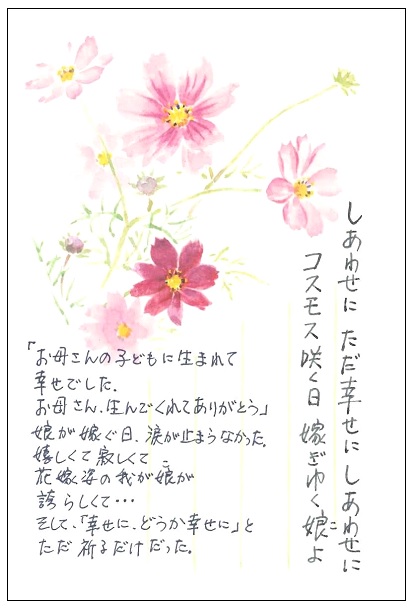 しあわせに ただ幸せに しあわせに
コスモス咲く日 嫁ぎゆく娘よ
こ
「お母さんの子どもに生まれて
幸せでした.
お母さん、生んでくれてありがとう」
娘が嫁ぐ日、涙が止まらなかった.
嬉しくて寂しくて
花嫁姿の我が娘が
こ
誇らしくて・・・
そして、「幸せに、どうか幸せに」と
ただ祈るだけだった.